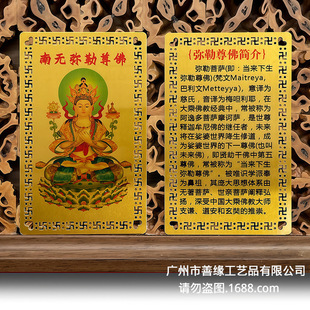 南无弥勒尊佛
(弥勒尊佛简介)
弥勒菩萨(即:当来下生
弥勒尊佛)(梵文Maitreya,
巴利文Metteyya),意译为
慈氏,音译为梅呾利耶,在
大乘佛教经典中,常被称为
阿逸多菩萨摩诃萨,是世尊
释迦牟尼佛的继任者,未来
将在娑婆世界降生修道,成
为娑婆世界的下一尊佛(也叫
未来佛),即贤劫千佛中第五
尊佛,常被称为“当来下生
弥勒尊佛”。被唯识学派奉
为鼻祖,其庞大思想体系由
无著菩萨、世亲菩萨阐释弘
扬,深受中国大乘佛教大师
支谦、道安和玄奘的推崇。
广州市善缘工艺品有限公司
请勿盗图.1688.com